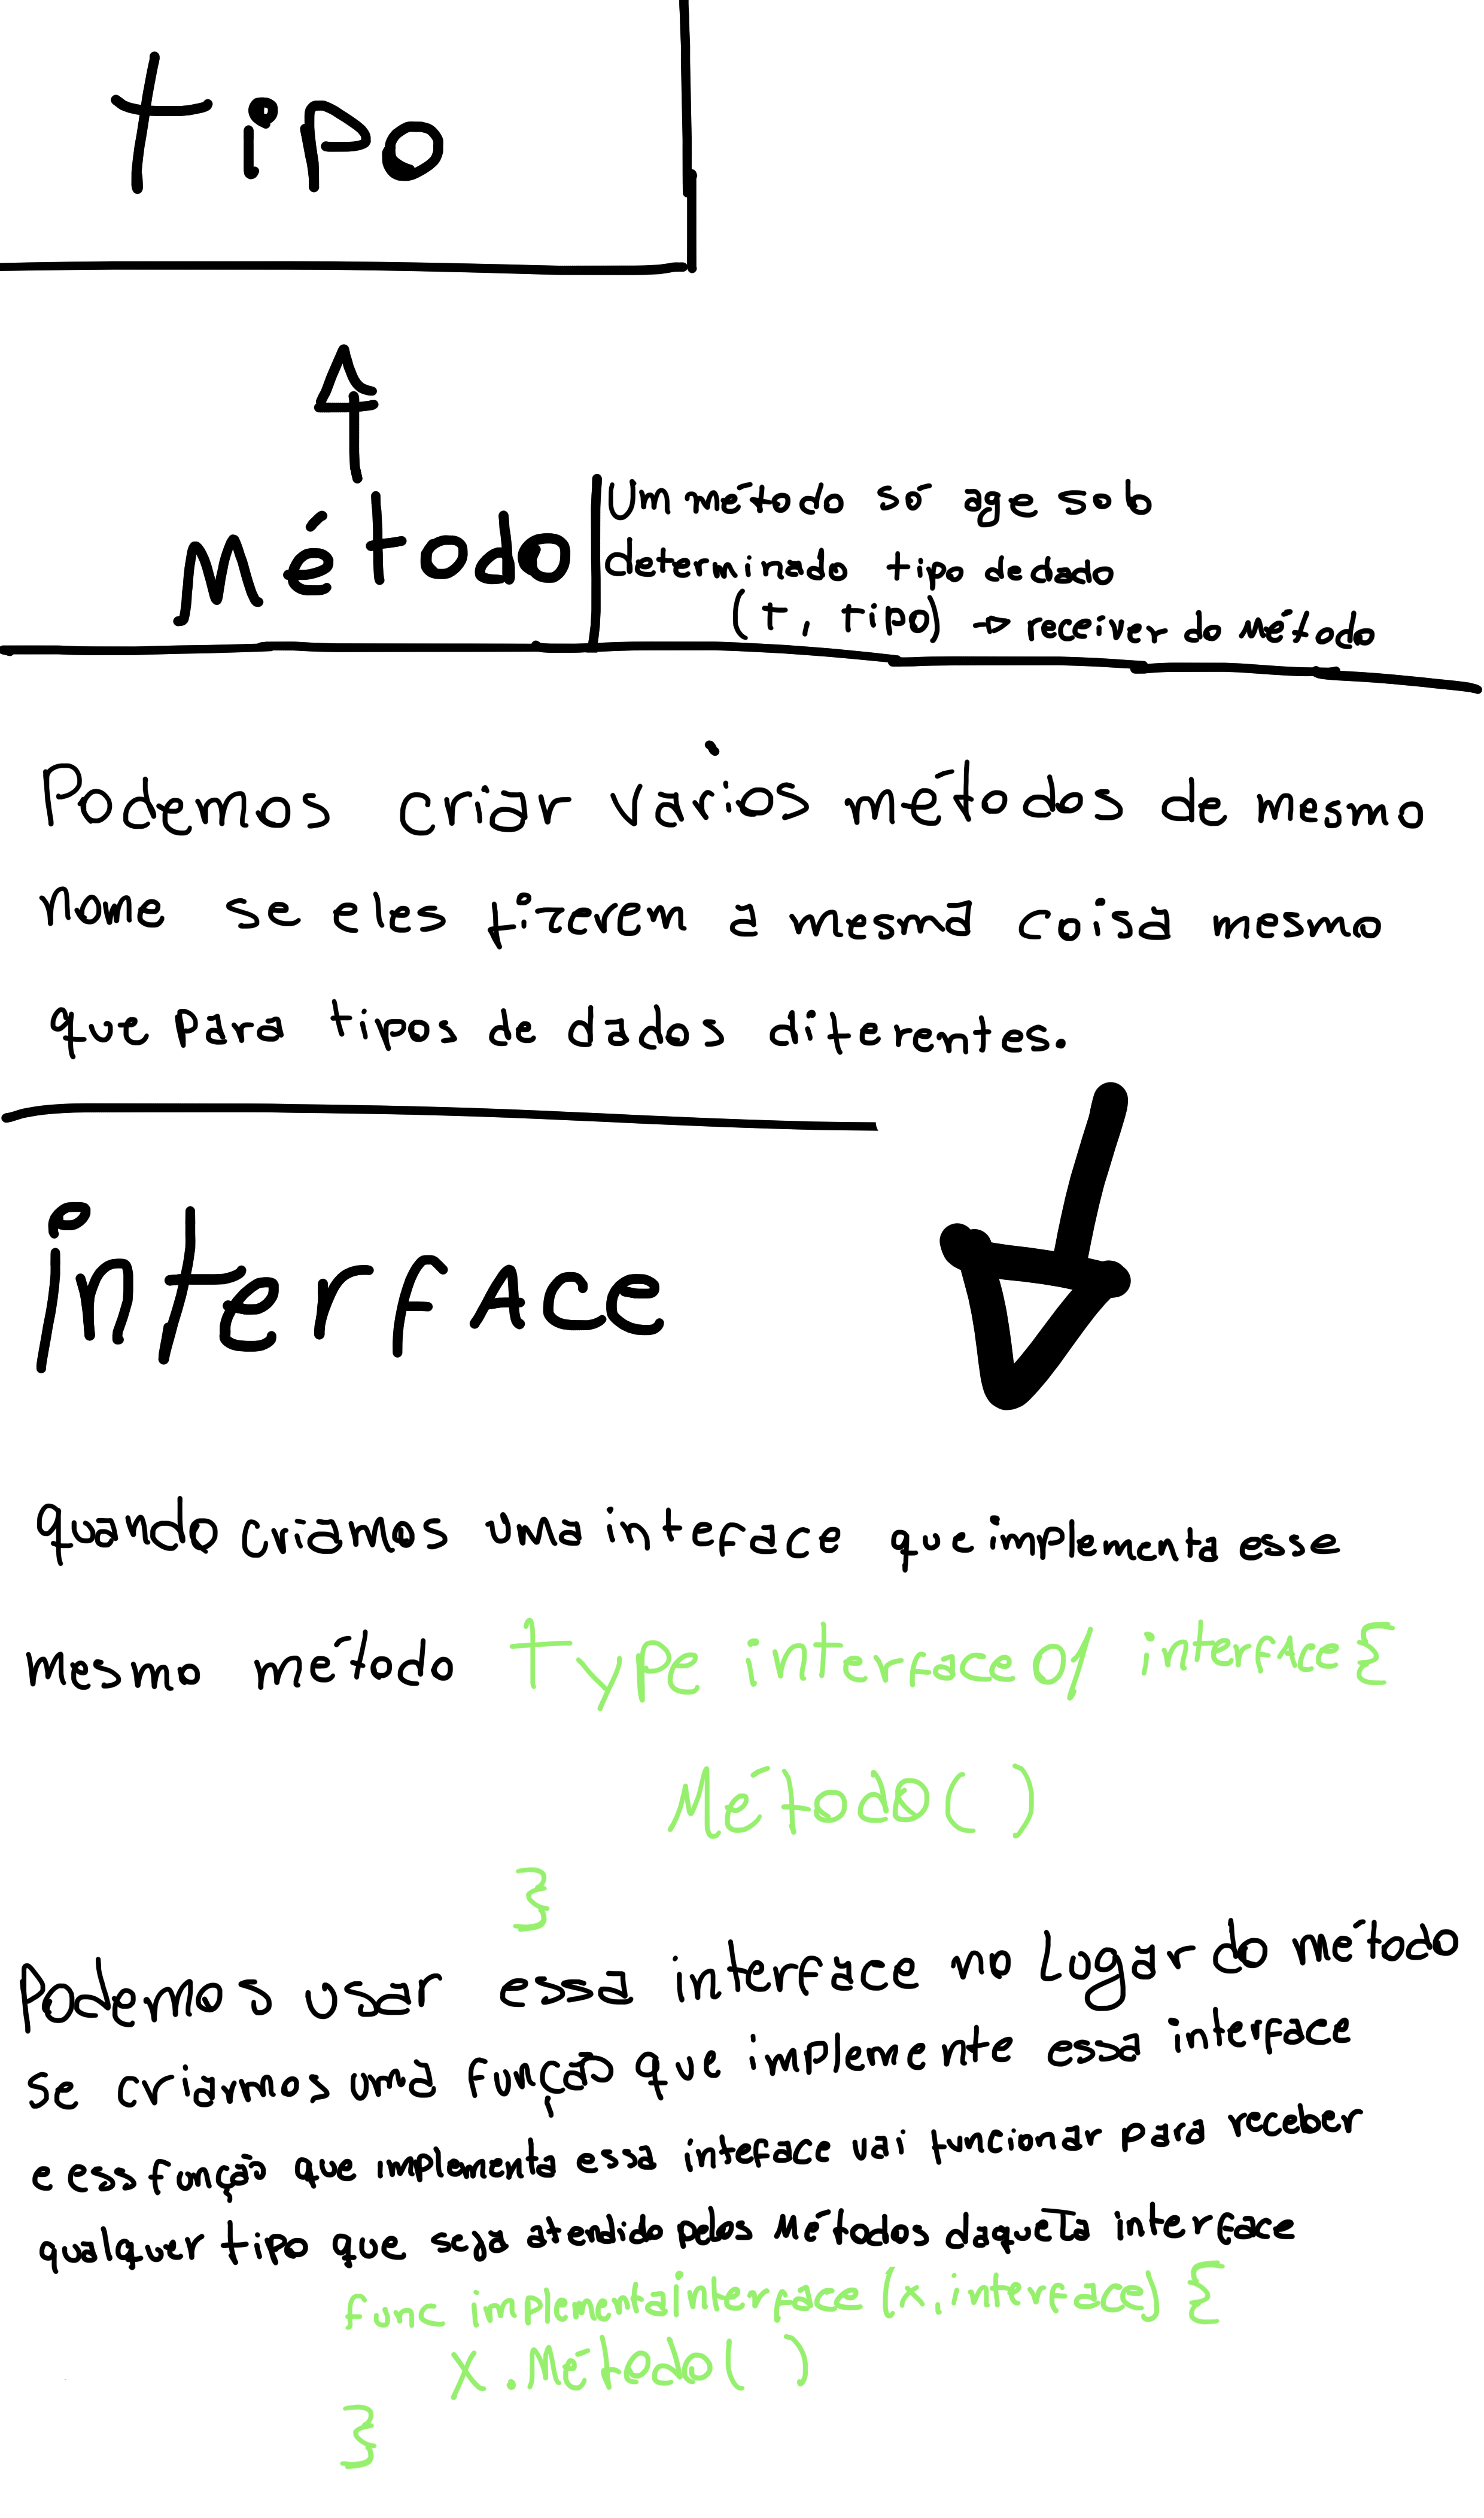 tipo
Método
Um método só age sob
determinado tipo de dado
(t, tipo) → receiver do método
Podemos criar varios métodos de mesmo
nome se eles fizerem a mesma coisa mesmo
que para tipos de dados diferentes.
interface
quando criamos uma interface que implementa esse
mesmo método
type interface01 interface{
Método()
}
podemos usar essa interface no lugar do método
se criarmos uma função que implemente essa interface
e essa função que implementa essa interface vai funcionar para receber
qualquer tipo que seja atendido pelos métodos daquela interface
func implementainterface (x, interface) {
X.Método()
}